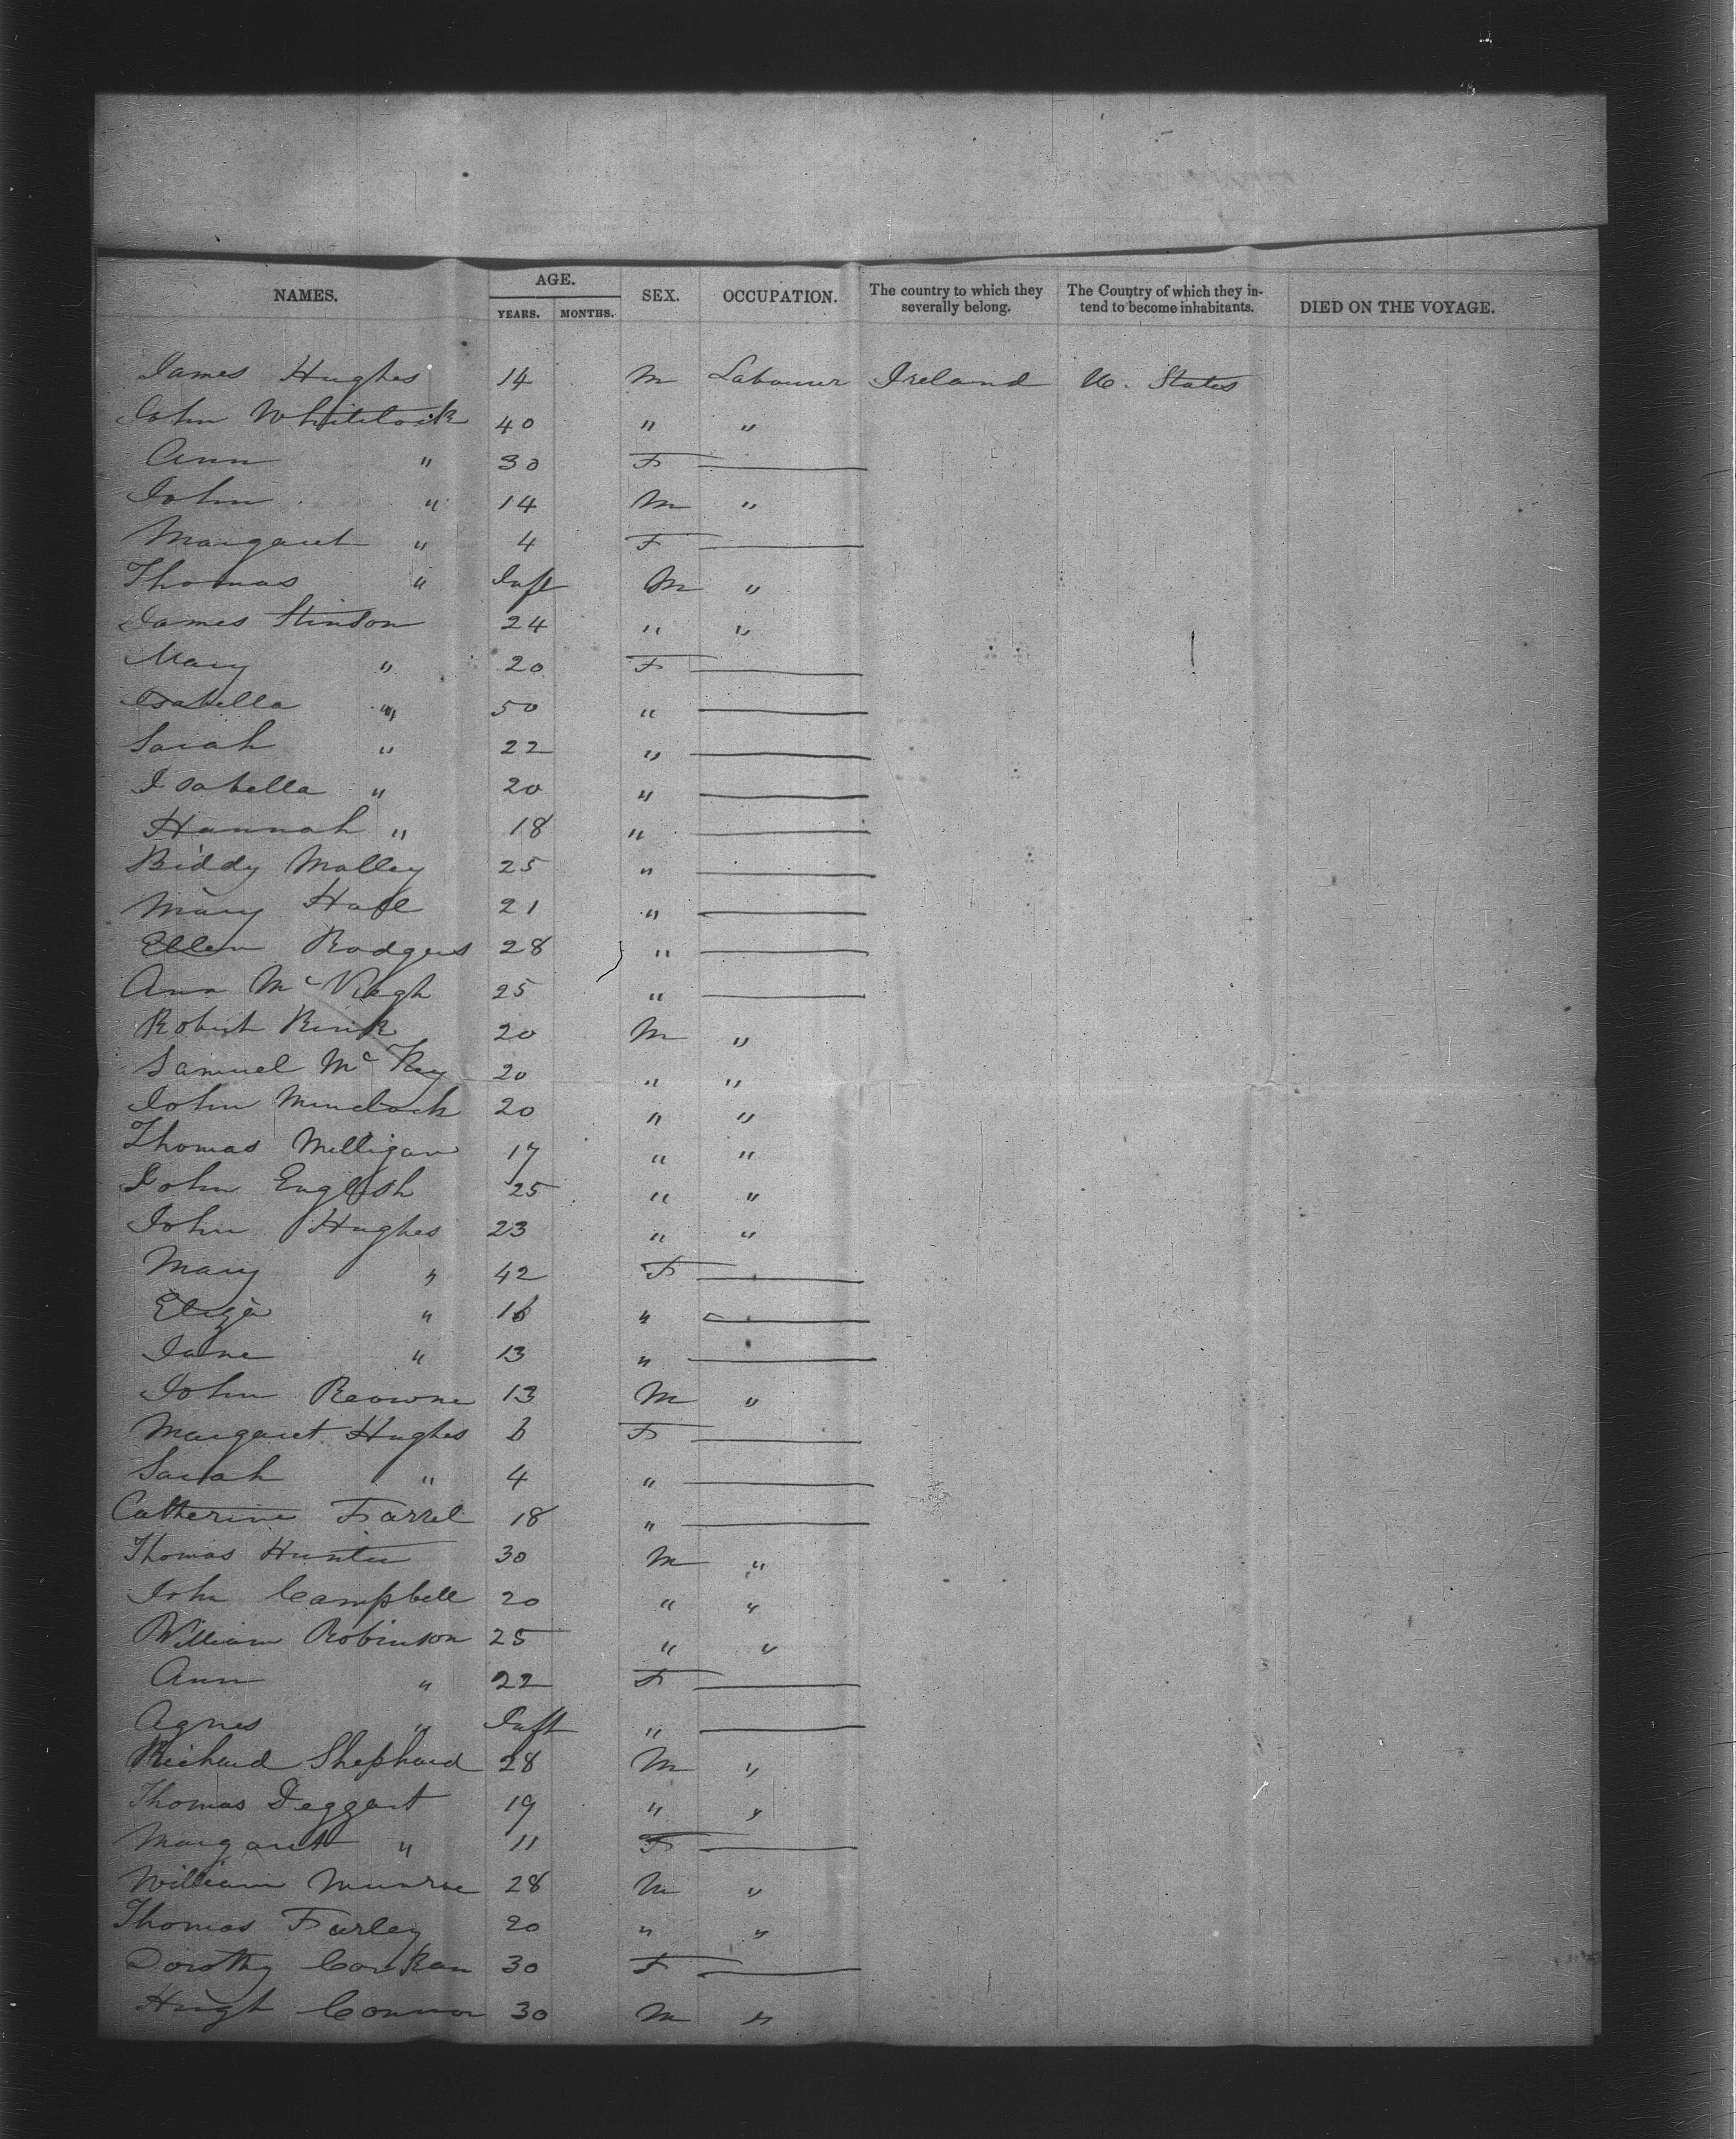 NAMES. AGE. SEX. OCCUPATION. The country to which they severally belong. The Country of which they intend to become inhabitants. DIED ON THE VOYAGE.
YEARS. MONTHS.
James Hughes 14 M Labourer Ireland U. States
John Whitelock 40 " "
Ann " 30 F —
John " 14 M "
Margaret " 4 F —
Thomas " Inft M "
James Stinson 24 " "
Mary " 20 F —
Isabella " 50 " —
Sarah " 22 " —
Isabella " 20 " —
Hannah " 18 " —
Biddy Molley 25 " —
Mary 21 " —
Ellen Rodgers 28 " —
Ann Mc 25 " —
Robert 20 M "
Samuel Mc Key 20 " "
John Murdock 20 " "
Thomas Milligan 17 " "
John English 25 " "
John Hughes 23 " "
Mary " 42 F —
Eliza " 16 " —
Jane " 13 " —
John Browne 13 M "
Margaret Hughes 6 F —
Sarah " 4 " —
Catherine Farrel 18 " —
Thomas Hunter 30 M "
John Campbell 20 " "
William Robinson 25 " "
Ann " 22 F —
Agnes " Inft " —
Richard Shephard 28 M "
Thomas Deggart 19 " "
Margaret " 11 F —
William Munroe 28 M "
Thomas Farley 20 " "
Dorothy Corkan 30 F —
Hugh Connor 30 M "